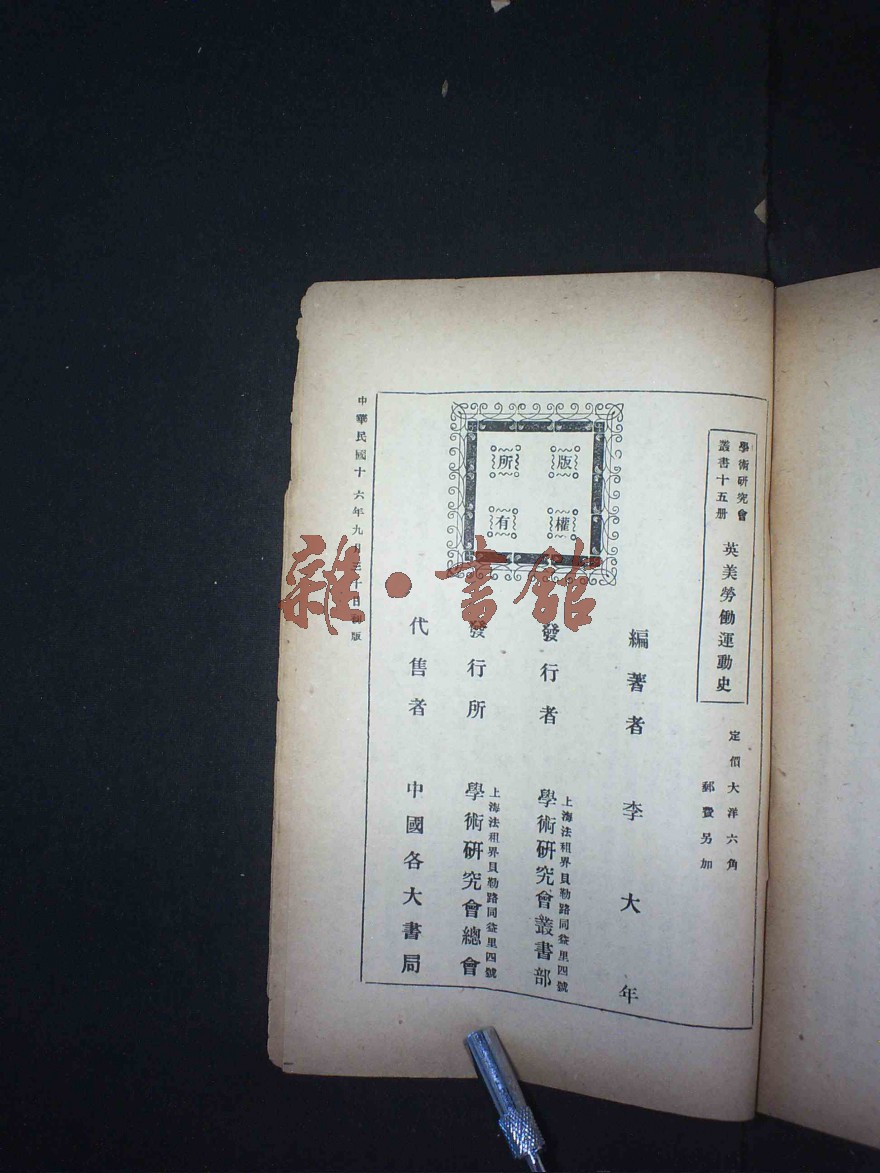 學術研究會
叢書十五册
英美勞働運動史
定價大洋六角
郵費另加
編著者 李大年
發行者 上海法租界貝勒路同益里四號
學術研究會叢書部
發行所 上海法租界貝勒路同益里四號
學術研究會總會
代售者 中國各大書局
版權
所有
中華民國十六年九月三十日初版
雜·書館